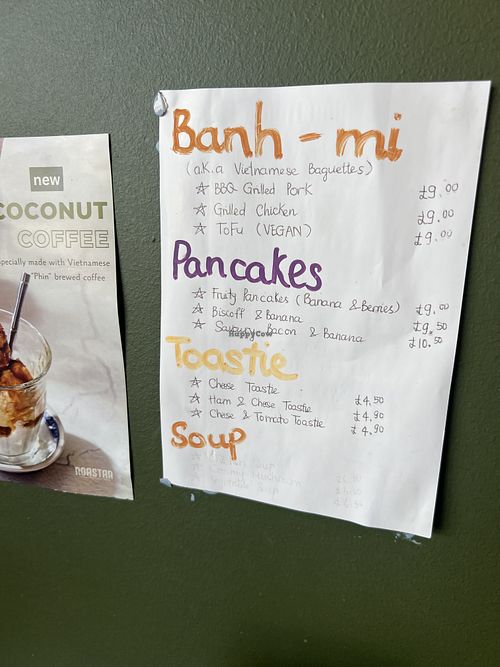 new
COCONUT
COFFEE
specially made with Vietnamese
"Phin" brewed coffee
ROASTAR
Banh - mi
(a.k.a Vietnamese Baguettes)
☆ BBQ Grilled Pork £9.00
☆ Grilled Chicken £9.00
☆ ToFu (VEGAN) £9.00
Pancakes
☆ Fruity Pancakes (Banana & Berries) £9.00
☆ Biscoff & Banana £9.50
☆ Bacon & Banana £10.50
HappyCow
Toastie
☆ Cheese Toastie £4,50
☆ Ham & Cheese Toastie £4,90
☆ Chese & Tomato Toastie £4,90
Soup